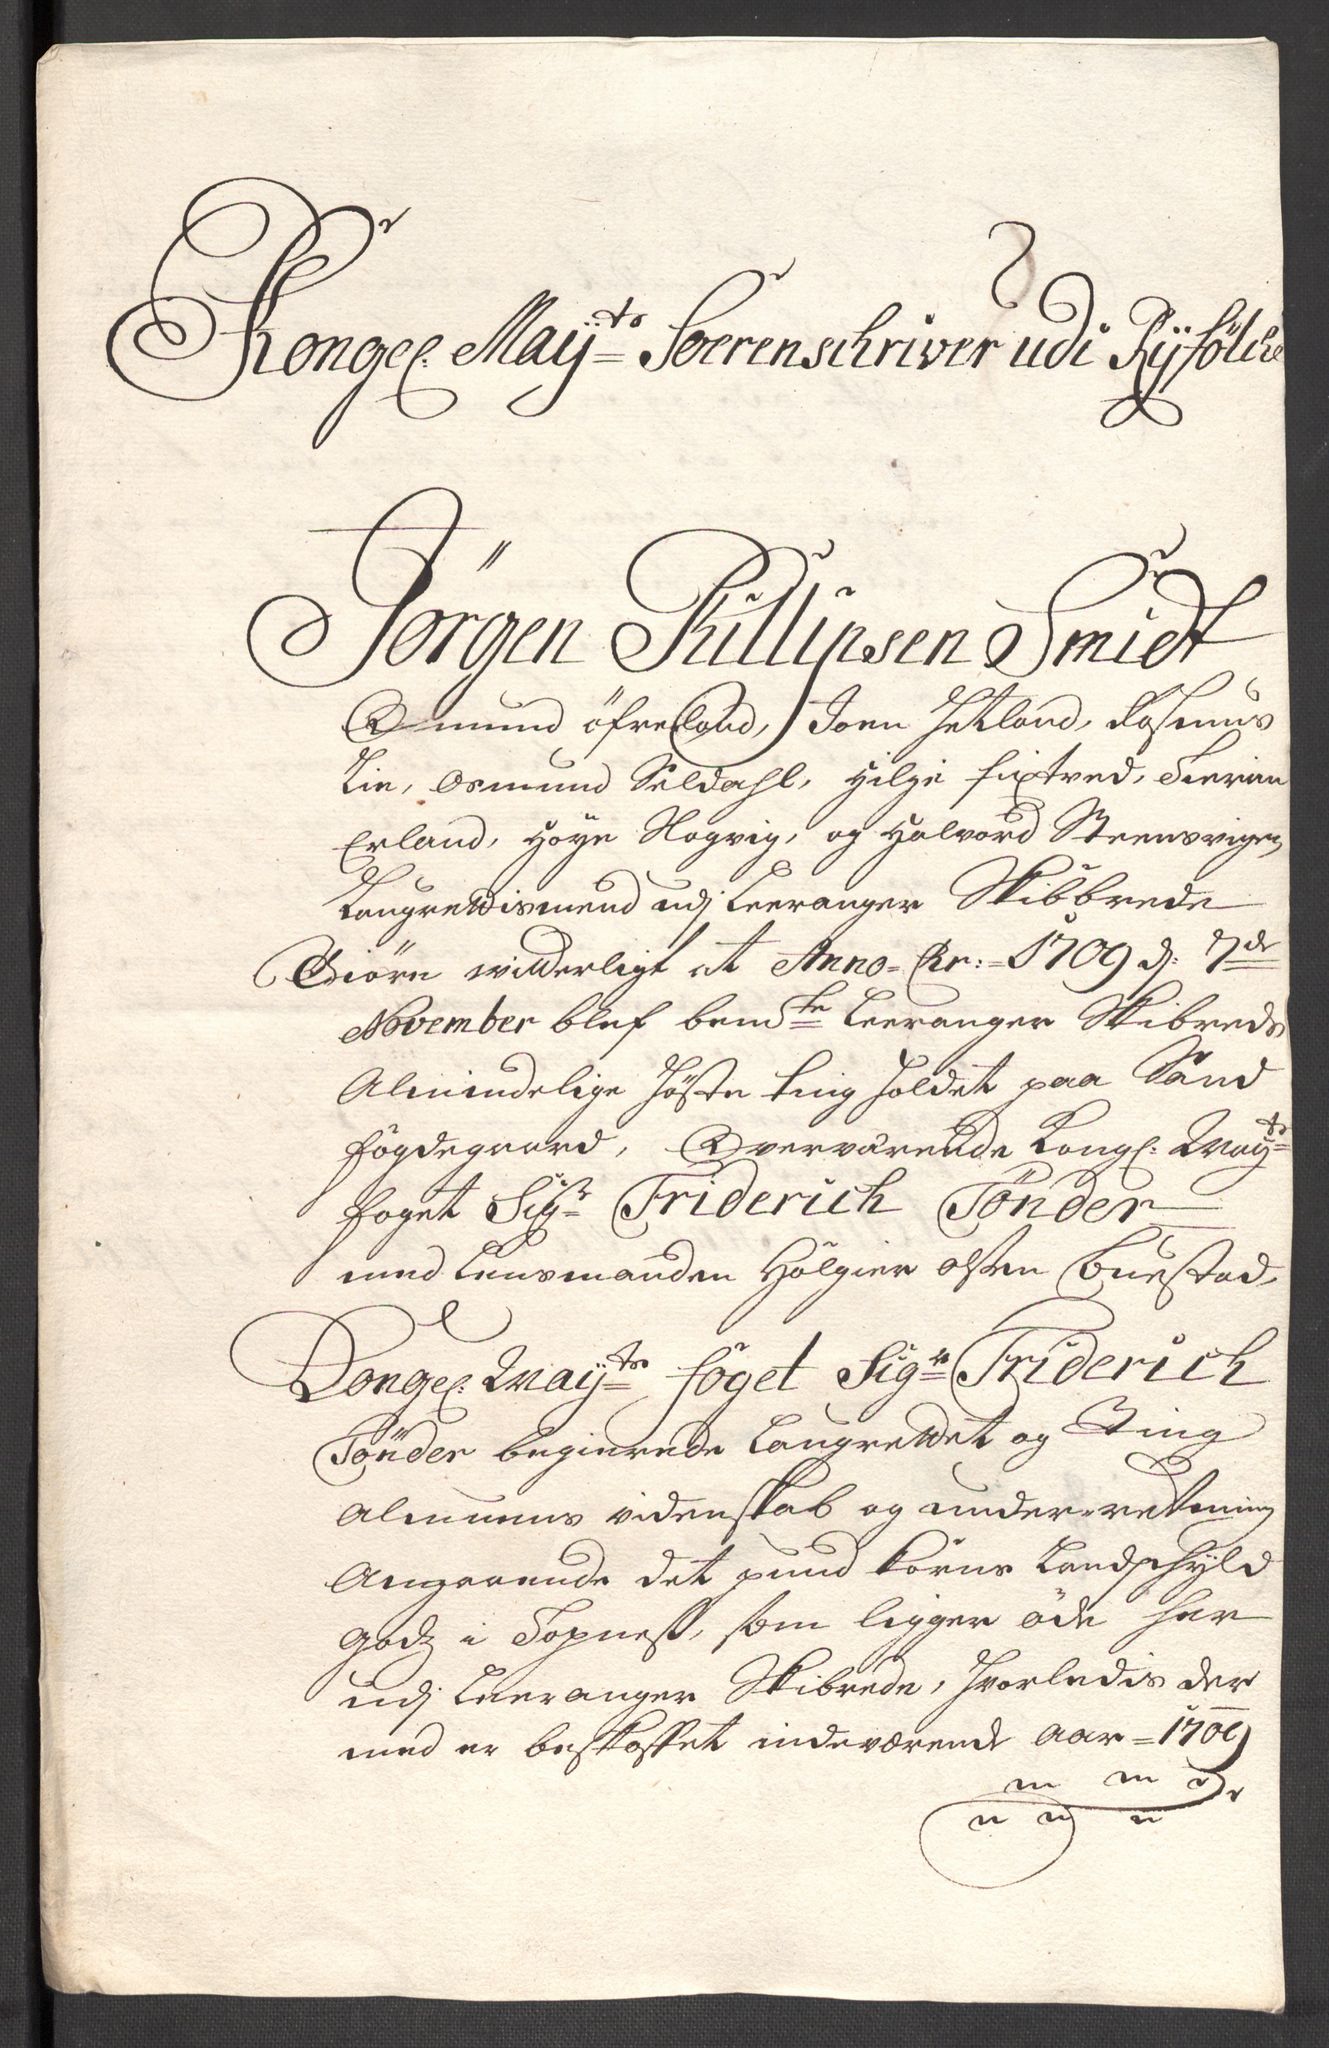 Kongel: Maÿts Soerenschriver udi Rÿfölche
Jörgen Phillipsen Smidt
Omund öfreland, Joen Hetland, Rasmus
Lie, Osmund Seldahl, Hilge, Sievien
Erland, Höye Nogvig, og Halvord Steensvigen,
Laugrettismend udj Leeranger Skibbrede
Giöre witterligt at Anno Kr: 1709 d: 7de
November blef bemte Leeranger Skibreds
Almindelige höste ting holdet paa Sand
fogdegaard, Overværende Kongl: Mayts
foget Sigr Friderich Tönder
med Lensmanden Hölgier olsen Buestad,
Kongel: Maÿts foget Sigr Friderich
Tönder begierede Laugrettet og Ting
Almuens videnskab og under-retning
Angaaende det pund korns Landschyld
godz i Sopness, som ligger öde her
udj Leeranger Skibrede, hvorledis der
med er beskaffet indeværende aar 1709